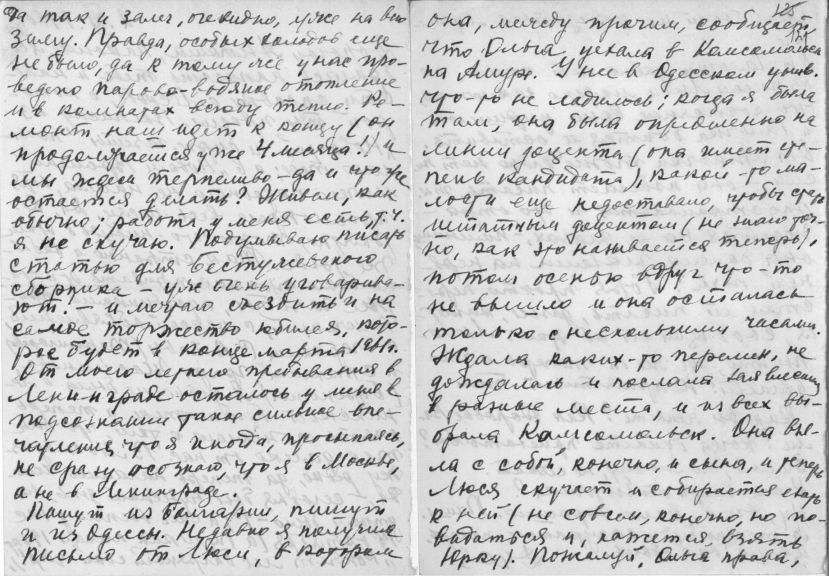 да так и залег, очевидно, уже на всю
зиму. Правда, особых холодов еще
не было, да к тому же у нас про-
ведено парово-водяное отопление
и в комнатах всюду тепло. Ре-
монт наш идет к концу (он
продолжается уже 4 месяца!) и
мы ждем терпеливо - да и что уже
остается делать? Живем, как
обычно; работа у меня есть, т. ч.
я не скучаю. Подумываю писать
статью для Бестужевского
сборника - уж очень уговарива-
ют. - и мечтаю съездить и на
самое торжество юбилея, кото-
рое будет в конце марта
От моего летнего пребывания в
Ленинграде осталось у меня в
подсознании такое сильное впе-
чатление, что я иногда, просыпаясь,
не сразу осознаю, что я в Москве,
а не в Ленинграде.
Пишут из Болгарии, пишут
и из Одессы. Недавно я получила
письмо от Люси, в котором
125
она, между прочим, сообщает,
что Ольга уехала в Комсомольск
на Амуре. У нее в Одесском унив.
что-то не ладилось; когда я была
там, она была определенно на
линии доцента (она имеет сте-
пень кандидата), какой-то ма-
лости еще недоставало, чтобы стать
штатным доцентом (не знаю точ-
но, как это называется теперь),
потом осенью вдруг что-то
не вышло и она осталась
только с несколькими часами.
Ждала каких-то перемен, не
дождалась и послала заявления
в разные места, и из всех вы-
брала Комсомольск. Она взя-
ла с собой, конечно, и сына, и теперь
Люся скучает и собирается ехать
к ней (не совсем, конечно, но по-
видаться и, кажется, взять
Юрку). Пожалуй, Ольга права,